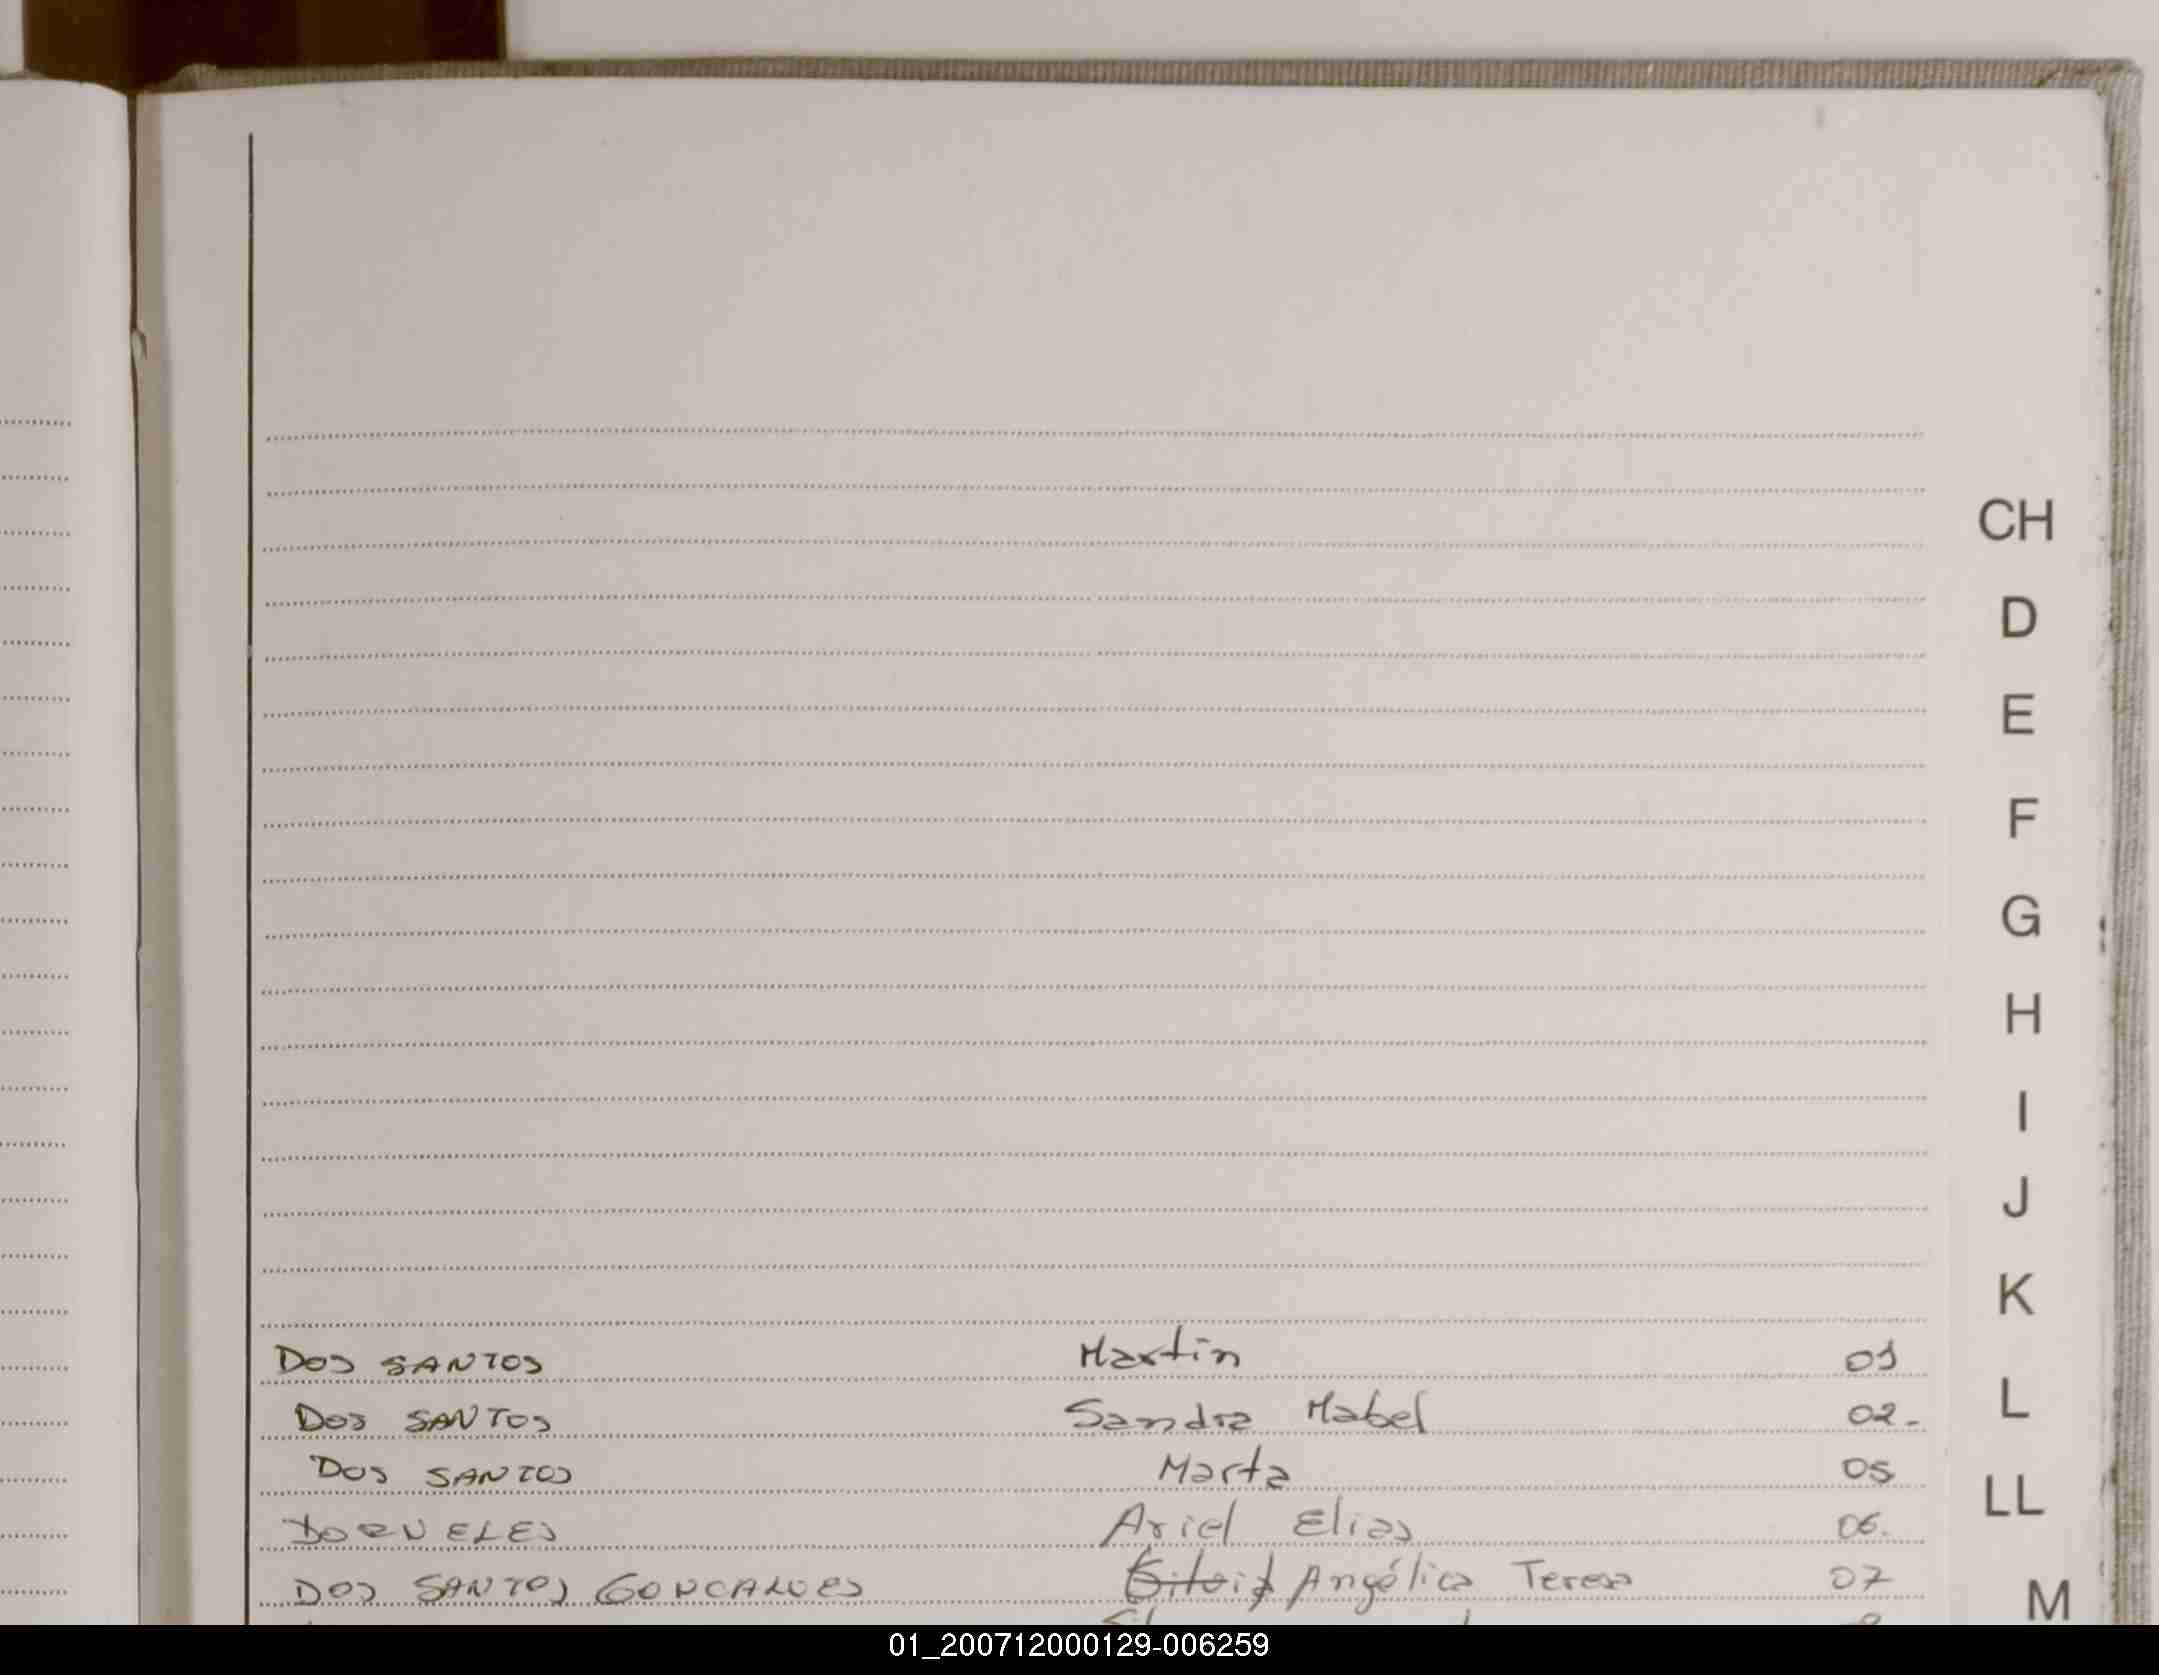 CH
D
E
F
G
H
I
J
K
DOS SANTOS Martin 01
L
DOS SANTOS Sandra Mabel 02.
DOS SANTOS Marta 05
LL
DORNELES Ariel Elias 06.
DOS SANTOS GONCALVES Angélica Teresa 07
M
01_200712000129-006259